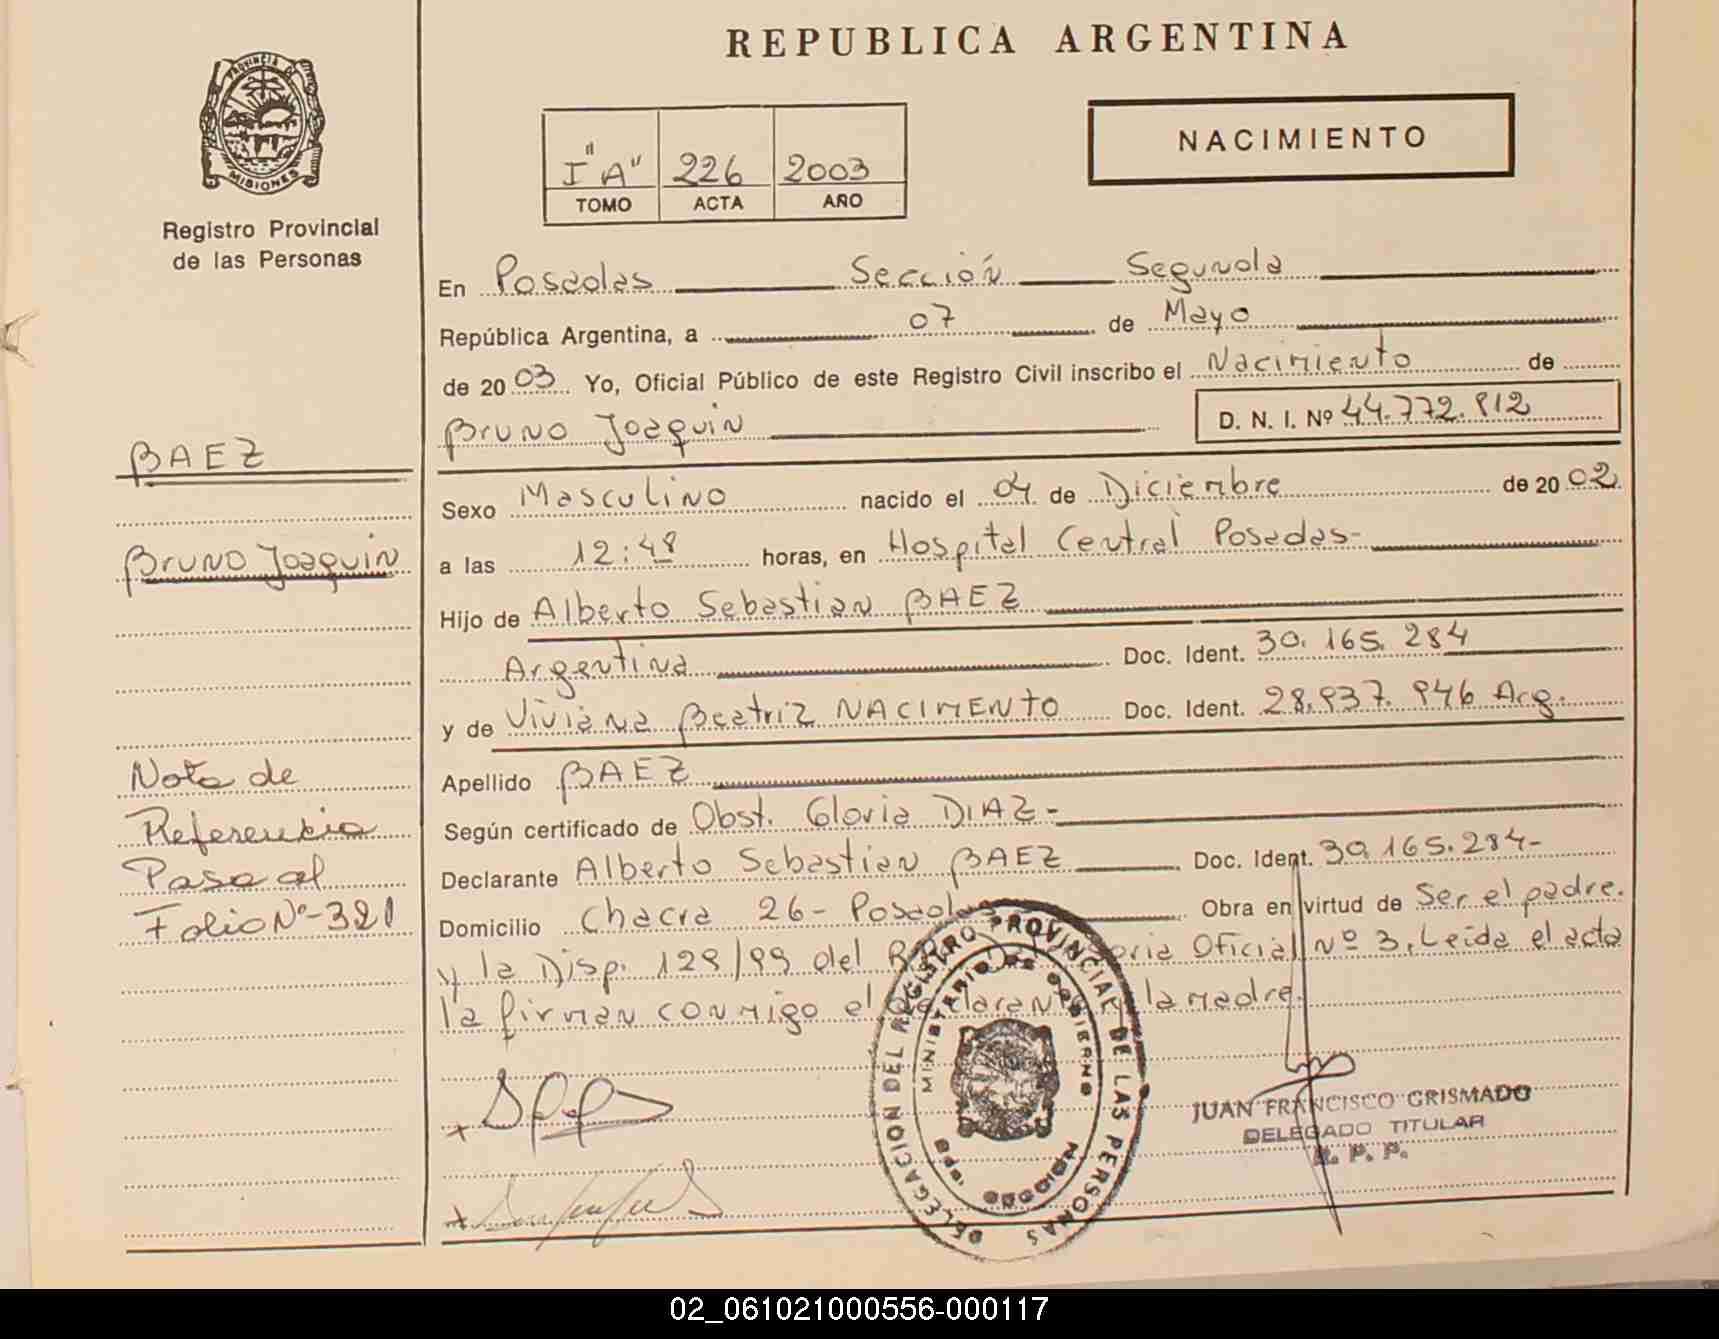 REPUBLICA ARGENTINA
PROVINCIA DE
MISIONES
Registro Provincial
de las Personas
I "A" 226 2003
TOMO ACTA AÑO
NACIMIENTO
En Posadas Sección Segunda
República Argentina, a 07 de Mayo
de 2003 Yo, Oficial Público de este Registro Civil inscribo el Nacimiento de
Bruno Joaquin D. N. I. Nº 44.772.812
BAEZ
Bruno Joaquin
Sexo Masculino nacido el 04 de Diciembre de 2002
a las 12:48 horas, en Hospital Central Posadas-
Hijo de Alberto Sebastian BAEZ
Argentina Doc. Ident. 30.165.284
y de Viviana Beatriz NACIMENTO Doc. Ident. 28.937.946 Arg.
Apellido BAEZ
Según certificado de Obst. Gloria DIAZ-
Declarante Alberto Sebastian BAEZ Doc. Ident. 30.165.284-
Domicilio Chacra 26- Posadas Obra en virtud de Ser el padre.
y la Disp. 129/99 del Oficial Nº 3. Leida el acta
la firman conmigo el declarante la madre.
Nota de
Referencia
Pasa al
Folio Nº-321
DELEGACION DEL REGISTRO PROVINCIAL DE LAS PERSONAS
MINISTERIO DE GOBIERNO
MISIONES
JUAN FRANCISCO GRISMADO
DELEGADO TITULAR
R. P. P.
02_061021000556-000117